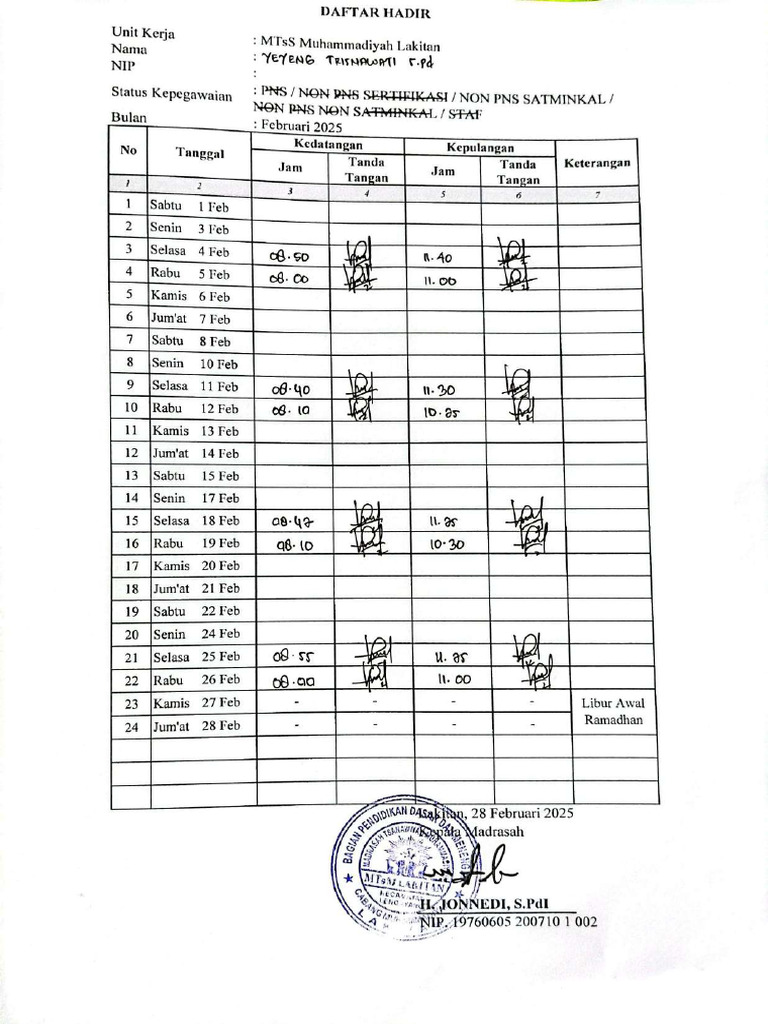 DAFTAR HADIR
Unit Kerja : MTsS Muhammadiyah Lakitan
Nama : YEYENG TRISNAWATI S.Pd
NIP :
Status Kepegawaian : PNS / NON PNS SERTIFIKASI / NON PNS SATMINKAL /
NON PNS NON SATMINKAL / STAF
Bulan : Februari 2025
No Tanggal Kedatangan Kepulangan Keterangan
Jam Tanda Tangan Jam Tanda Tangan
1 2 3 4 5 6 7
1 Sabtu 1 Feb
2 Senin 3 Feb
3 Selasa 4 Feb 08.50 11.40
4 Rabu 5 Feb 08.00 11.00
5 Kamis 6 Feb
6 Jum'at 7 Feb
7 Sabtu 8 Feb
8 Senin 10 Feb
9 Selasa 11 Feb 08.40 11.30
10 Rabu 12 Feb 08.10 10.25
11 Kamis 13 Feb
12 Jum'at 14 Feb
13 Sabtu 15 Feb
14 Senin 17 Feb
15 Selasa 18 Feb 08.42 11.25
16 Rabu 19 Feb 08.10 10.30
17 Kamis 20 Feb
18 Jum'at 21 Feb
19 Sabtu 22 Feb
20 Senin 24 Feb
21 Selasa 25 Feb 08.55 11.25
22 Rabu 26 Feb 08.00 11.00
23 Kamis 27 Feb - - - - Libur Awal
24 Jum'at 28 Feb - - - - Ramadhan
Lakitan, 28 Februari 2025
Kepala Madrasah
BAGIAN PENDIDIKAN DASAR DAN MENENG
MTsM LAKITAN
H. JONNEDI, S.PdI
NIP. 19760605 200710 1 002